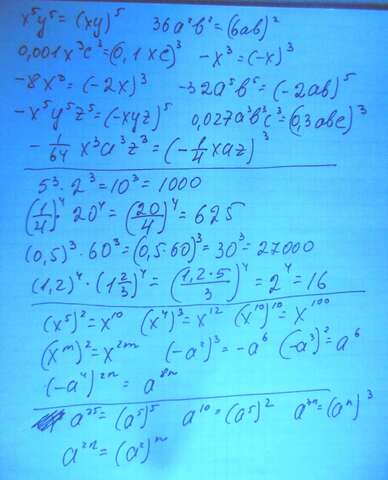 x⁵y⁵ = (xy)⁵ 36a²b² = (6ab)²
0,001x³c³ = (0,1xc)³ -x³ = (-x)³
-8x³ = (-2x)³ -32a⁵b⁵ = (-2ab)⁵
-x⁵y⁵z⁵ = (-xyz)⁵ 0,027a³b³c³ = (0,3abc)³
-1/64 x³a³z³ = (-1/4 xaz)³
5³ · 2³ = 10³ = 1000
(1/4)⁴ · 20⁴ = (20/4)⁴ = 625
(0,5)³ · 60³ = (0,5·60)³ = 30³ = 27000
(1,2)⁴ · (1 2/3)⁴ = (1,2·5/3)⁴ = 2⁴ = 16
(x⁵)² = x¹⁰ (x⁴)³ = x¹² (x¹⁰)¹⁰ = x¹⁰⁰
(xᵐ)² = x²ᵐ (-a²)³ = -a⁶ (-a³)² = a⁶
(-a⁴)²ⁿ = a⁸ⁿ
a²⁵ = (a⁵)⁵ a¹⁰ = (a⁵)² a³ⁿ = (aⁿ)³
a²ⁿ = (a²)ⁿ